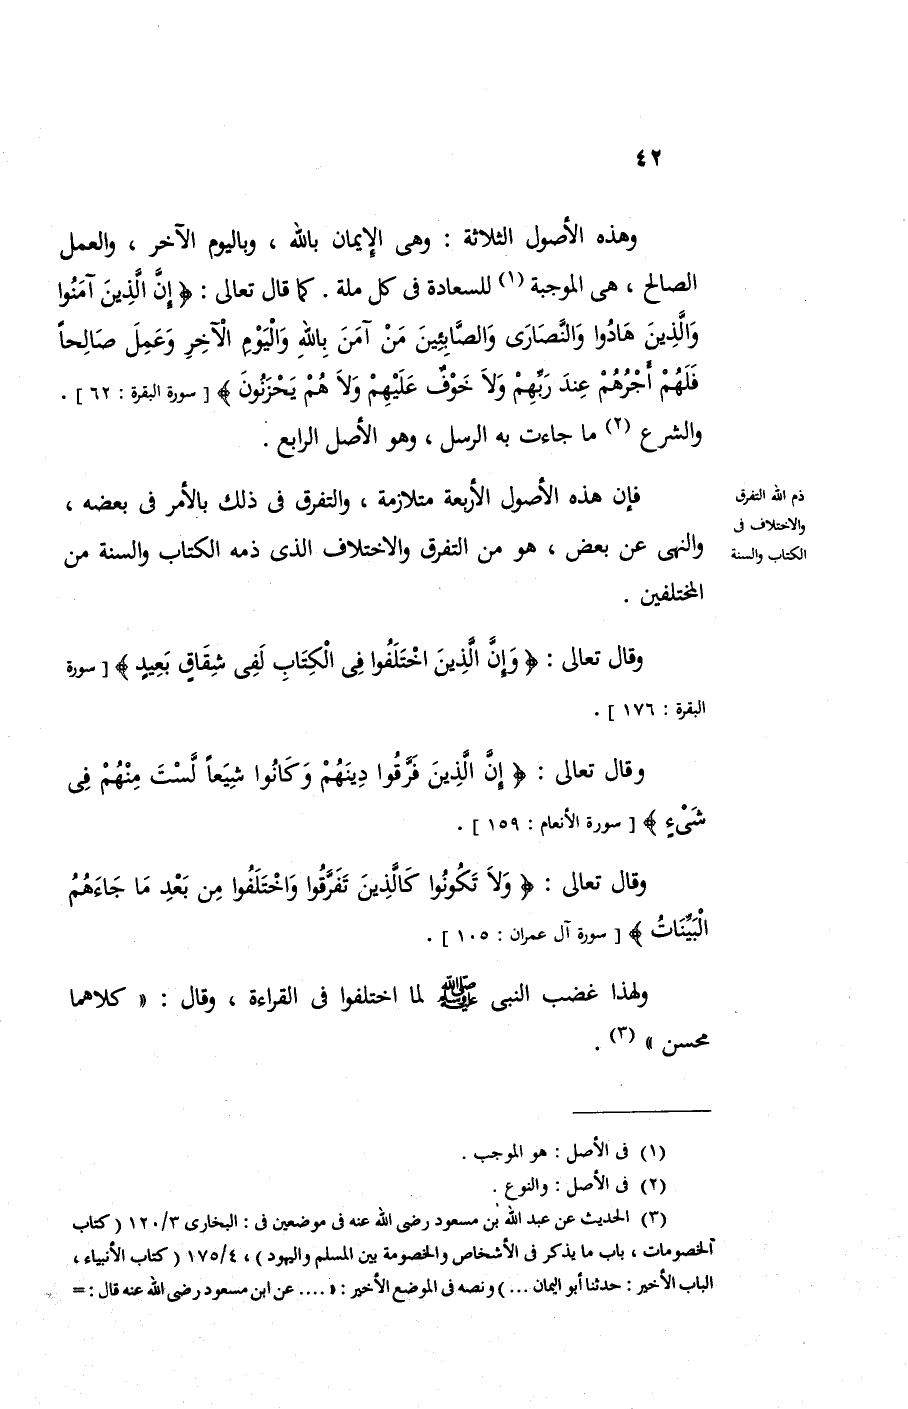 ٤٢
وهذه الأصول الثلاثة : وهى الإيمان بالله ، وباليوم الآخر ، والعمل
الصالح ، هى الموجبة (١) للسعادة فى كل ملة . كما قال تعالى : ﴿ إِنَّ الَّذِينَ آمَنُوا
وَالَّذِينَ هَادُوا وَالنَّصَارَى وَالصَّابِئِينَ مَنْ آمَنَ بِاللهِ وَالْيَوْمِ الْآخِرِ وَعَمِلَ صَالِحاً
فَلَهُمْ أَجْرُهُمْ عِندَ رَبِّهِمْ وَلاَ خَوْفٌ عَلَيْهِمْ وَلاَ هُمْ يَحْزَنُونَ ﴾ [ سورة البقرة : ٦٢ ] .
والشرع (٢) ما جاءت به الرسل ، وهو الأصل الرابع .
ذم الله التفرق
والاختلاف فى
الكتاب والسنة
فإن هذه الأصول الأربعة متلازمة ، والتفرق فى ذلك بالأمر فى بعضه ،
والنهى عن بعض ، هو من التفرق والاختلاف الذى ذمه الكتاب والسنة من
المختلفين .
وقال تعالى : ﴿ وَإِنَّ الَّذِينَ اخْتَلَفُوا فِى الْكِتَابِ لَفِى شِقَاقٍ بَعِيدٍ ﴾ [ سورة
البقرة : ١٧٦ ] .
وقال تعالى : ﴿ إِنَّ الَّذِينَ فَرَّقُوا دِينَهُمْ وَكَانُوا شِيَعاً لَّسْتَ مِنْهُمْ فِى
شَىْءٍ ﴾ [ سورة الأنعام : ١٥٩ ] .
وقال تعالى : ﴿ وَلاَ تَكُونُوا كَالَّذِينَ تَفَرَّقُوا وَاخْتَلَفُوا مِن بَعْدِ مَا جَاءَهُمُ
الْبَيِّنَاتُ ﴾ [ سورة آل عمران : ١٠٥ ] .
ولهذا غضب النبى ﷺ لما اختلفوا فى القراءة ، وقال : « كلاهما
محسن » (٣) .
(١) فى الأصل : هو الموجب .
(٢) فى الأصل : والنوع .
(٣) الحديث عن عبد الله بن مسعود رضى الله عنه فى موضعين فى : البخارى ١٢٠/٣ ( كتاب
الخصومات ، باب ما يذكر فى الأشخاص والخصومة بين المسلم واليهود ) ، ١٧٥/٤ ( كتاب الأنبياء ،
الباب الأخير : حدثنا أبو اليمان ... ) ونصه فى الموضع الأخير : « .... عن ابن مسعود رضى الله عنه قال : =